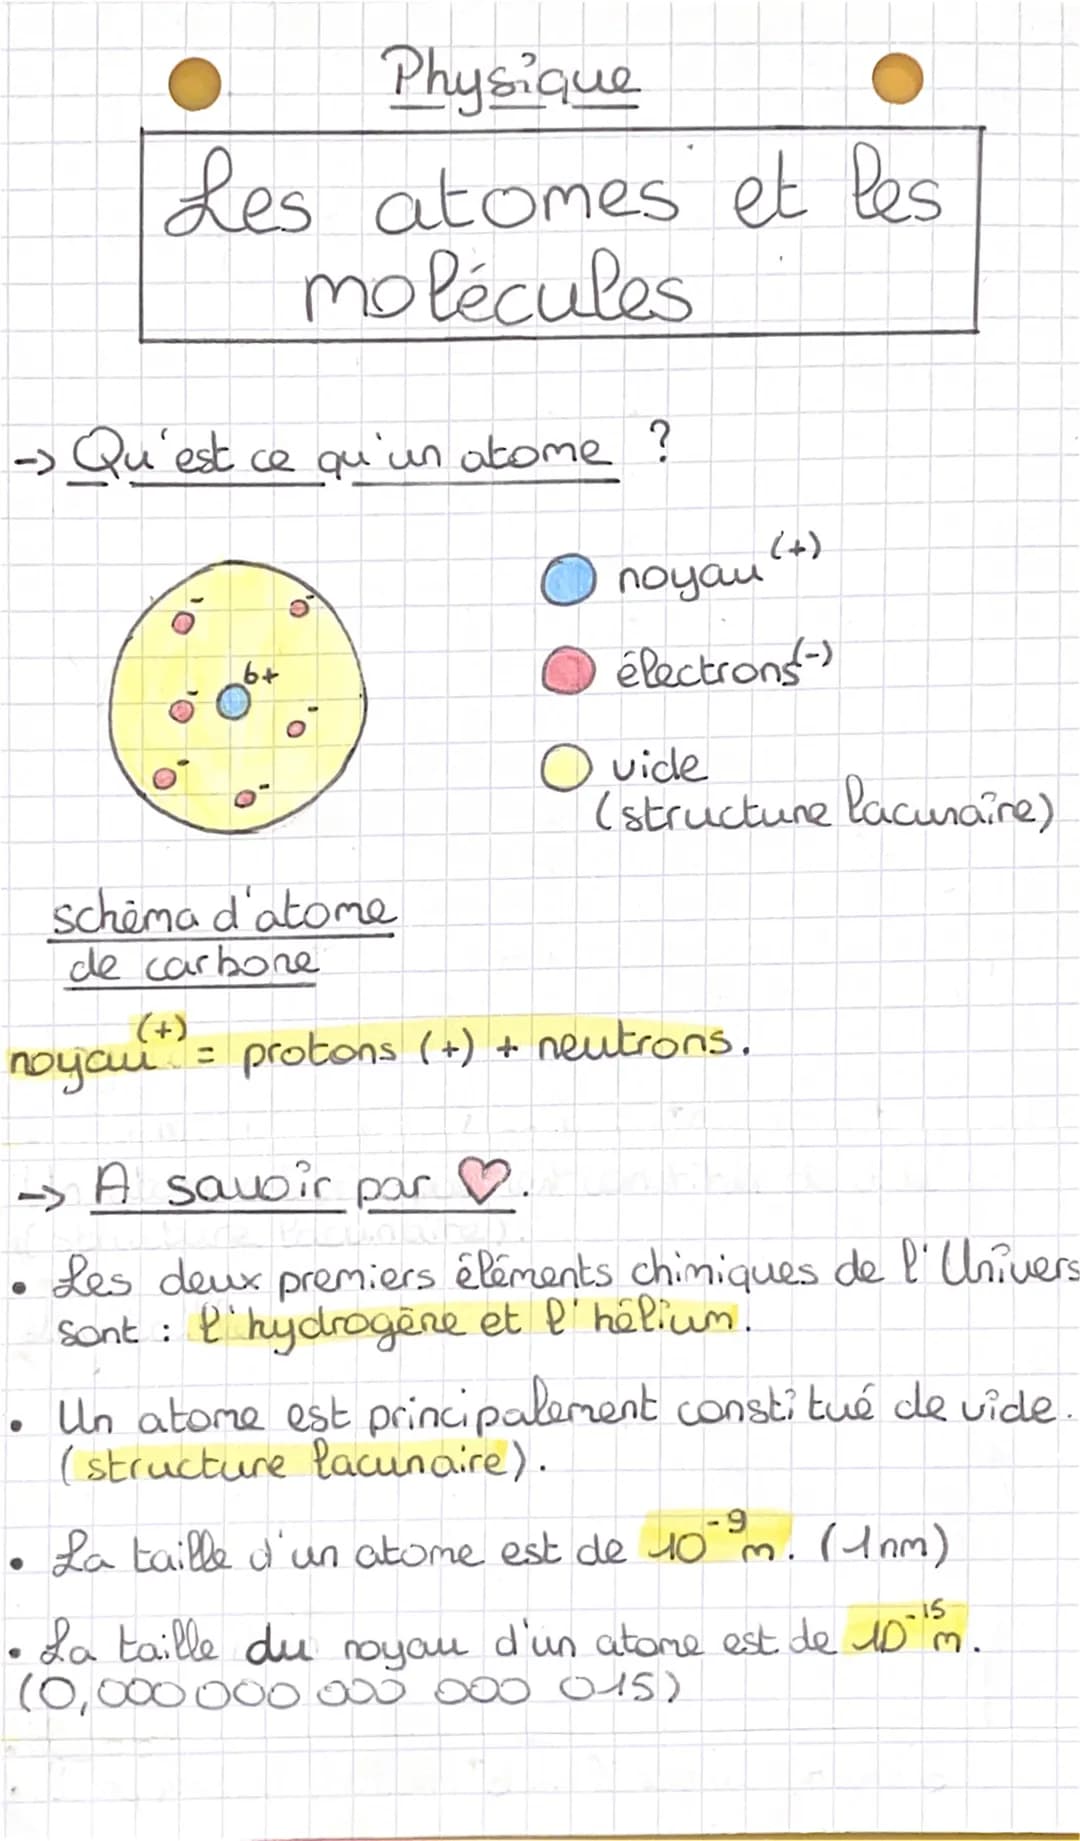 Physique
Les atomes et les
molécules
-> Qu'est ce qu'un atome ?
noyau (+)
électrons (-)
vide
(structure lacunaire)
6+
schéma d'atome
de carbone
noyau (+) = protons (+) + neutrons.
-> A savoir par ♡.
• Les deux premiers éléments chimiques de l'Univers
sont : l'hydrogène et l'hélium.
• Un atome est principalement constitué de vide.
(structure lacunaire).
• La taille d'un atome est de 10⁻⁹ m. (1nm)
• La taille du noyau d'un atome est de 10⁻¹⁵ m.
(0,000 000 000 000 015)